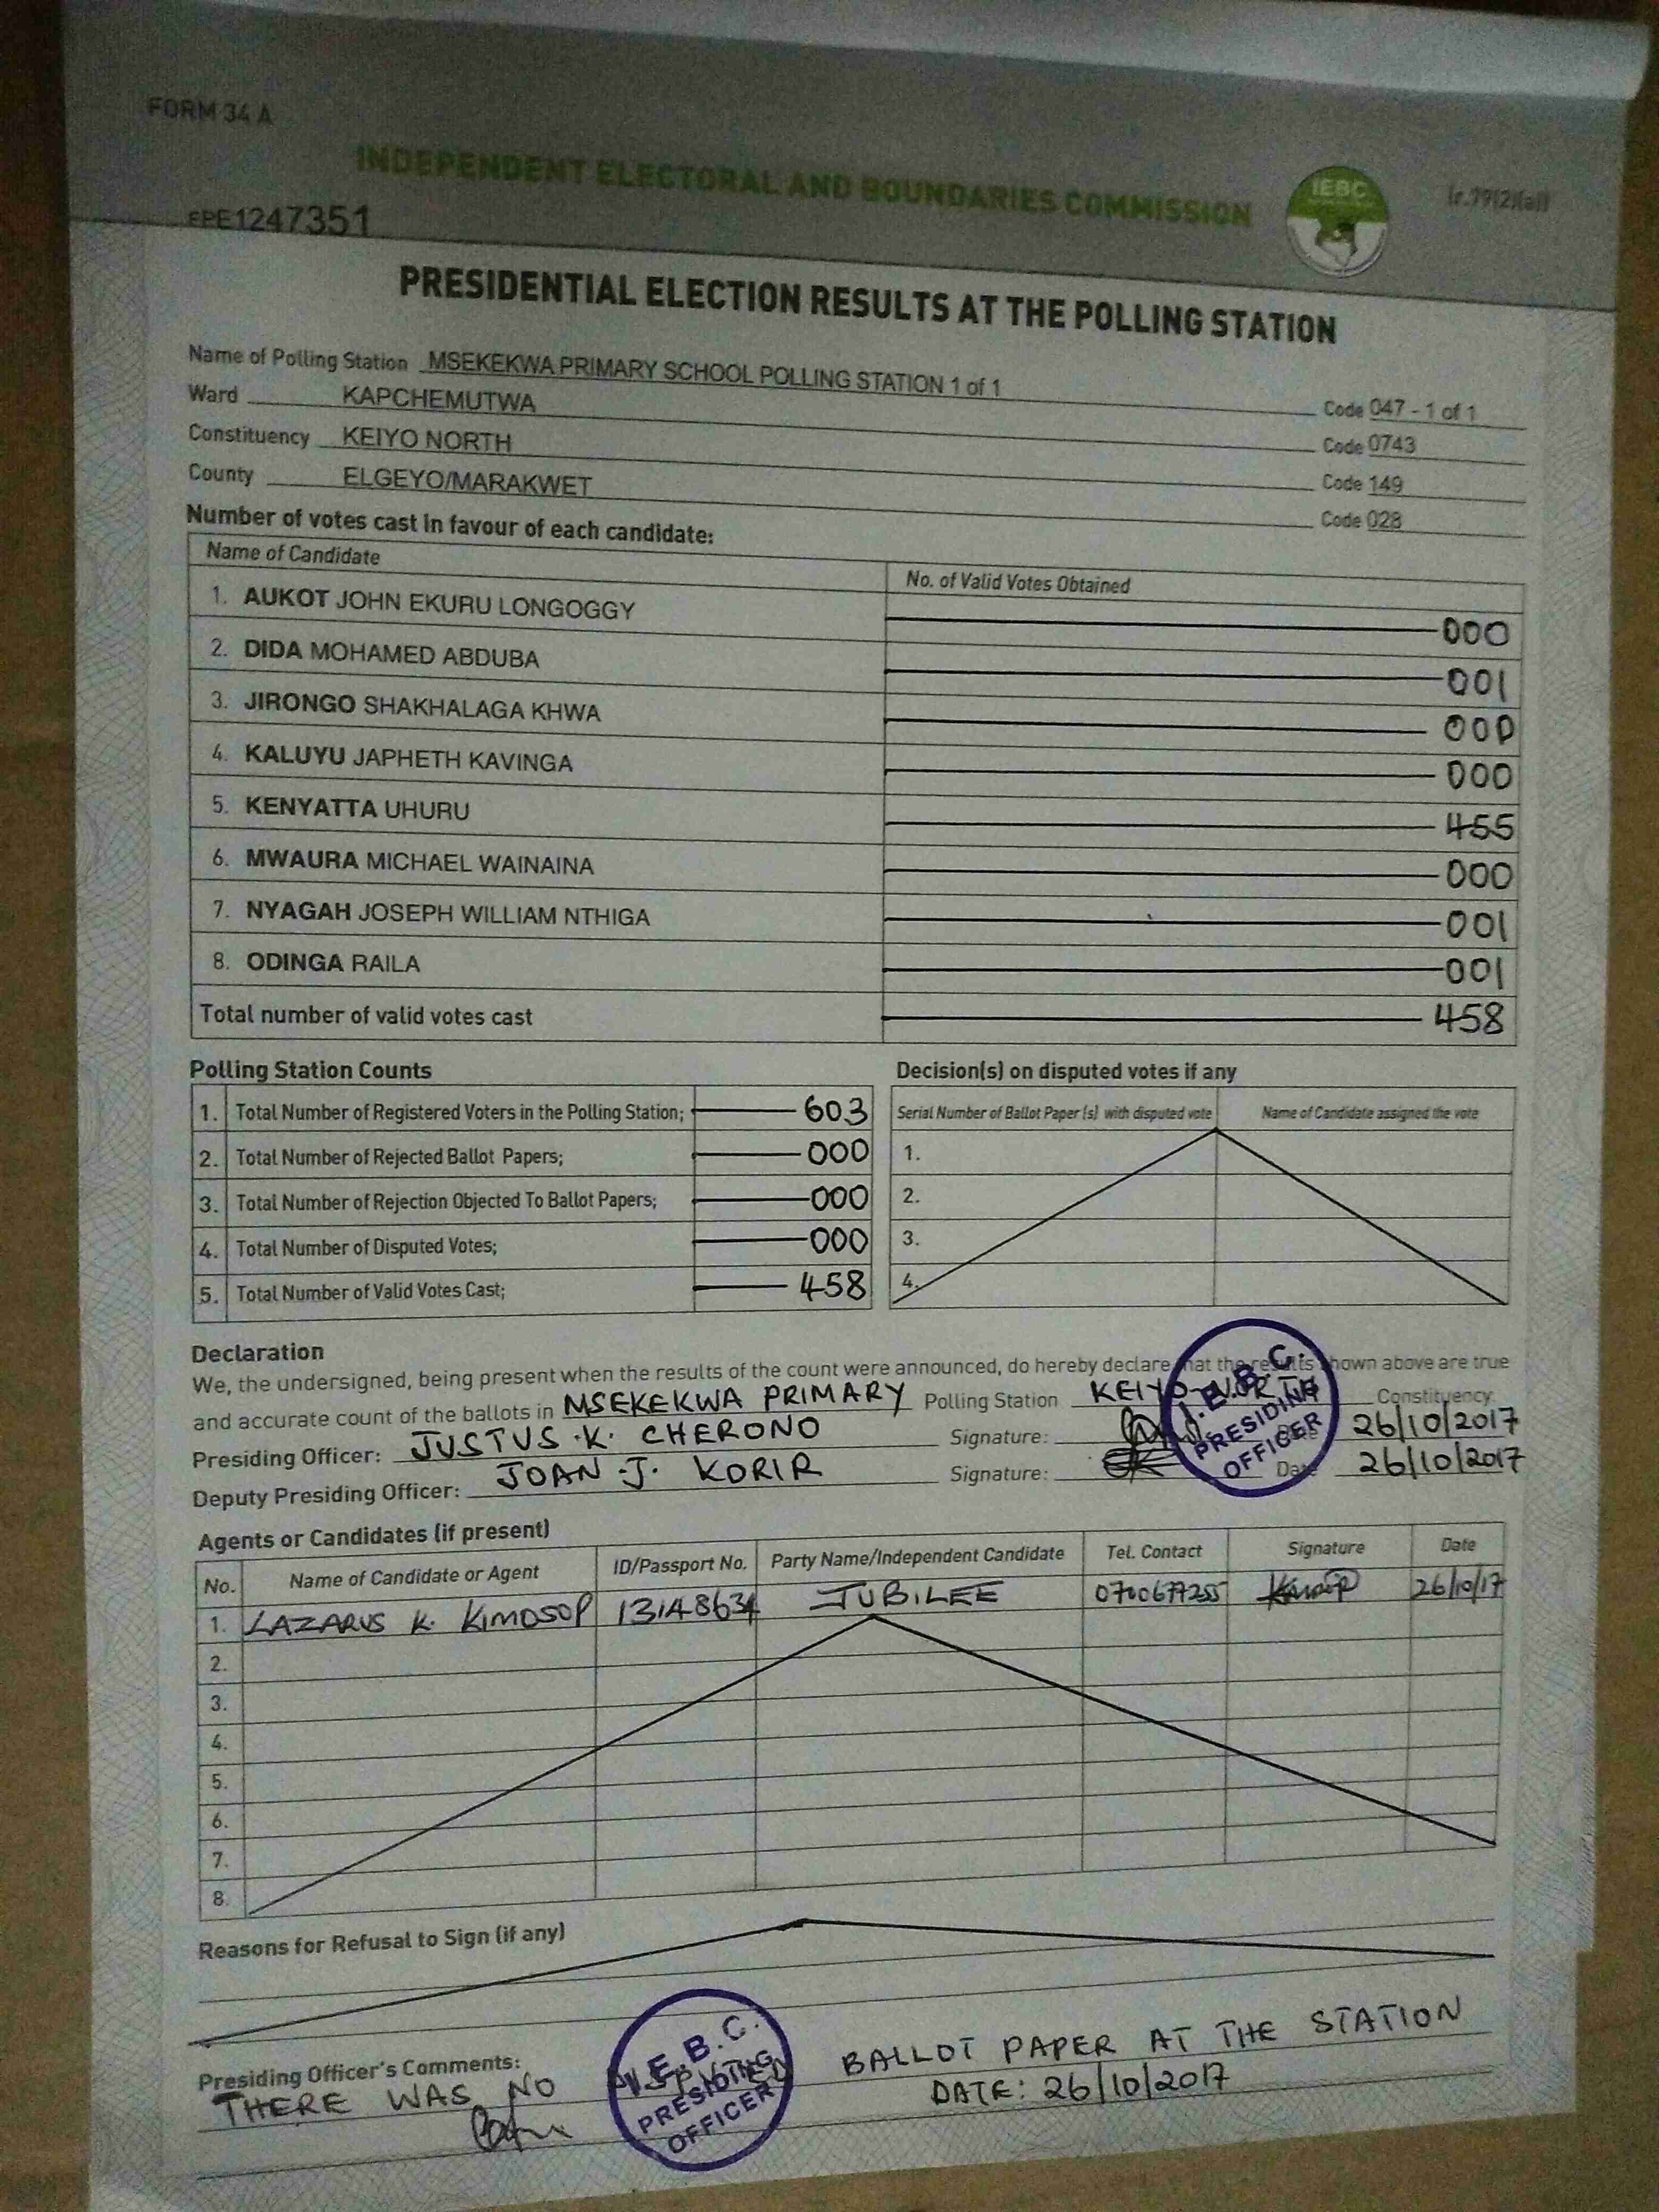 FORM 34 A
INDEPENDENT ELECTORAL AND BOUNDARIES COMMISSION
IEBC
(r.79(2)(a))
EPE1247351
PRESIDENTIAL ELECTION RESULTS AT THE POLLING STATION
Name of Polling Station MSEKEKWA PRIMARY SCHOOL POLLING STATION 1 of 1 Code 047 - 1 of 1
Ward KAPCHEMUTWA Code 0743
Constituency KEIYO NORTH Code 149
County ELGEYO/MARAKWET Code 028
Number of votes cast in favour of each candidate:
Name of Candidate No. of Valid Votes Obtained
1. AUKOT JOHN EKURU LONGOGGY 000
2. DIDA MOHAMED ABDUBA 001
3. JIRONGO SHAKHALAGA KHWA 000
4. KALUYU JAPHETH KAVINGA 000
5. KENYATTA UHURU 455
6. MWAURA MICHAEL WAINAINA 000
7. NYAGAH JOSEPH WILLIAM NTHIGA 001
8. ODINGA RAILA 001
Total number of valid votes cast 458
Polling Station Counts
1. Total Number of Registered Voters in the Polling Station; 603
2. Total Number of Rejected Ballot Papers; 000
3. Total Number of Rejection Objected To Ballot Papers; 000
4. Total Number of Disputed Votes; 000
5. Total Number of Valid Votes Cast; 458
Decision(s) on disputed votes if any
Serial Number of Ballot Paper (s) with disputed vote Name of Candidate assigned the vote
1.
2.
3.
4.
Declaration
We, the undersigned, being present when the results of the count were announced, do hereby declare that the results shown above are true
and accurate count of the ballots in MSEKEKWA PRIMARY Polling Station KEIYO NORTH Constituency
Presiding Officer: JUSTUS .K. CHERONO Signature: Date 26/10/2017
Deputy Presiding Officer: JOAN .J. KORIR Signature: Date 26/10/2017
I.E.B.C.
PRESIDING
OFFICER
Agents or Candidates (if present)
No. Name of Candidate or Agent ID/Passport No. Party Name/Independent Candidate Tel. Contact Signature Date
1. LAZARUS K. KIMOSOP 13148634 JUBILEE 0700677255 26/10/17
2.
3.
4.
5.
6.
7.
8.
Reasons for Refusal to Sign (if any)
Presiding Officer's Comments:
THERE WAS NO DISPUTED BALLOT PAPER AT THE STATION
DATE: 26/10/2017
I.E.B.C.
PRESIDING
OFFICER